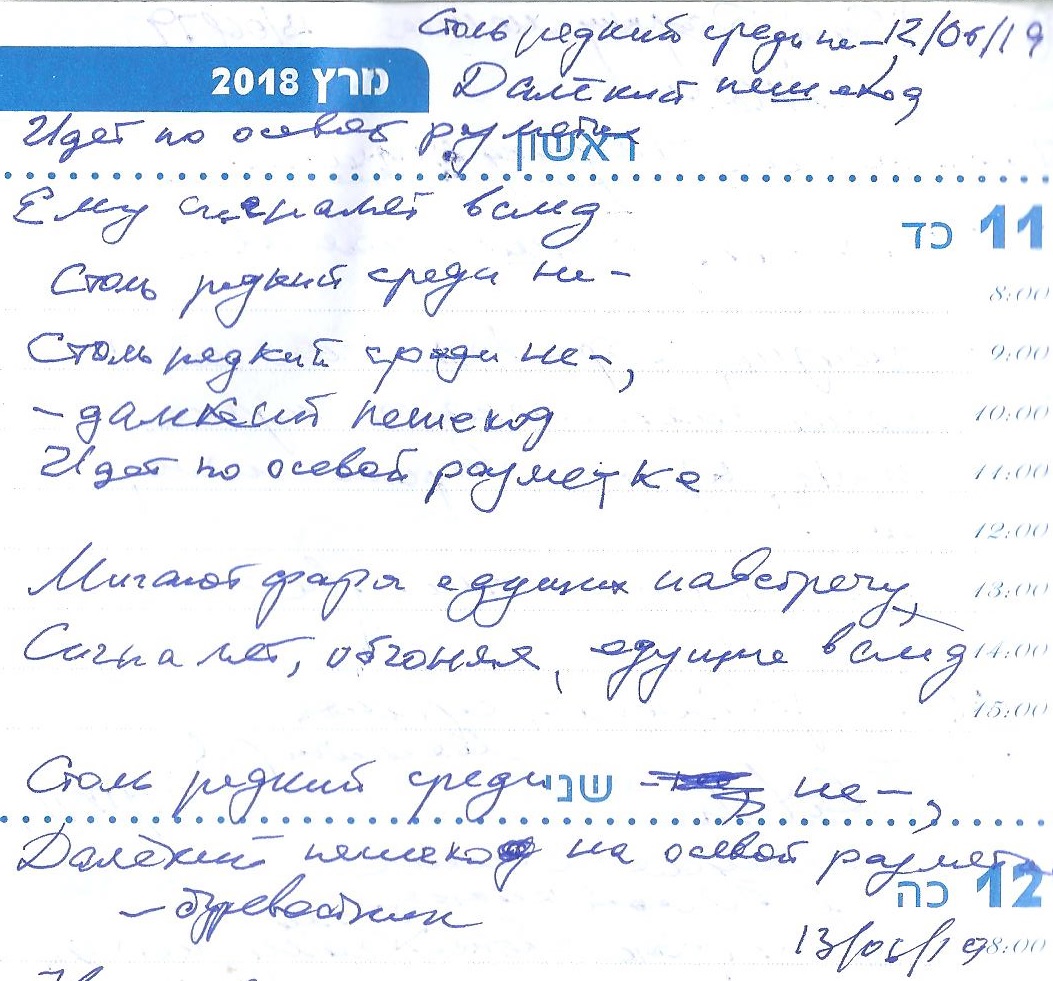 Столь редкий среди не- 12/06/19
מרץ 2018
Далёкий пешеход
Идет по осевой разметке
ראשון
Ему сигналят вслед
כד 11
Столь редкий среди не-
8:00
Столь редкий среди не-,
9:00
-далекий пешеход
10:00
Идет по осевой разметке
11:00
12:00
Мигают фары едущих навстречу,
13:00
Сигналят, обгоняя, едущие вслед
14:00
15:00
Столь редкий среди не-,
שני
Далёкий пешеход на осевой разметке
כה 12
-буревестник
13/06/19
8:00